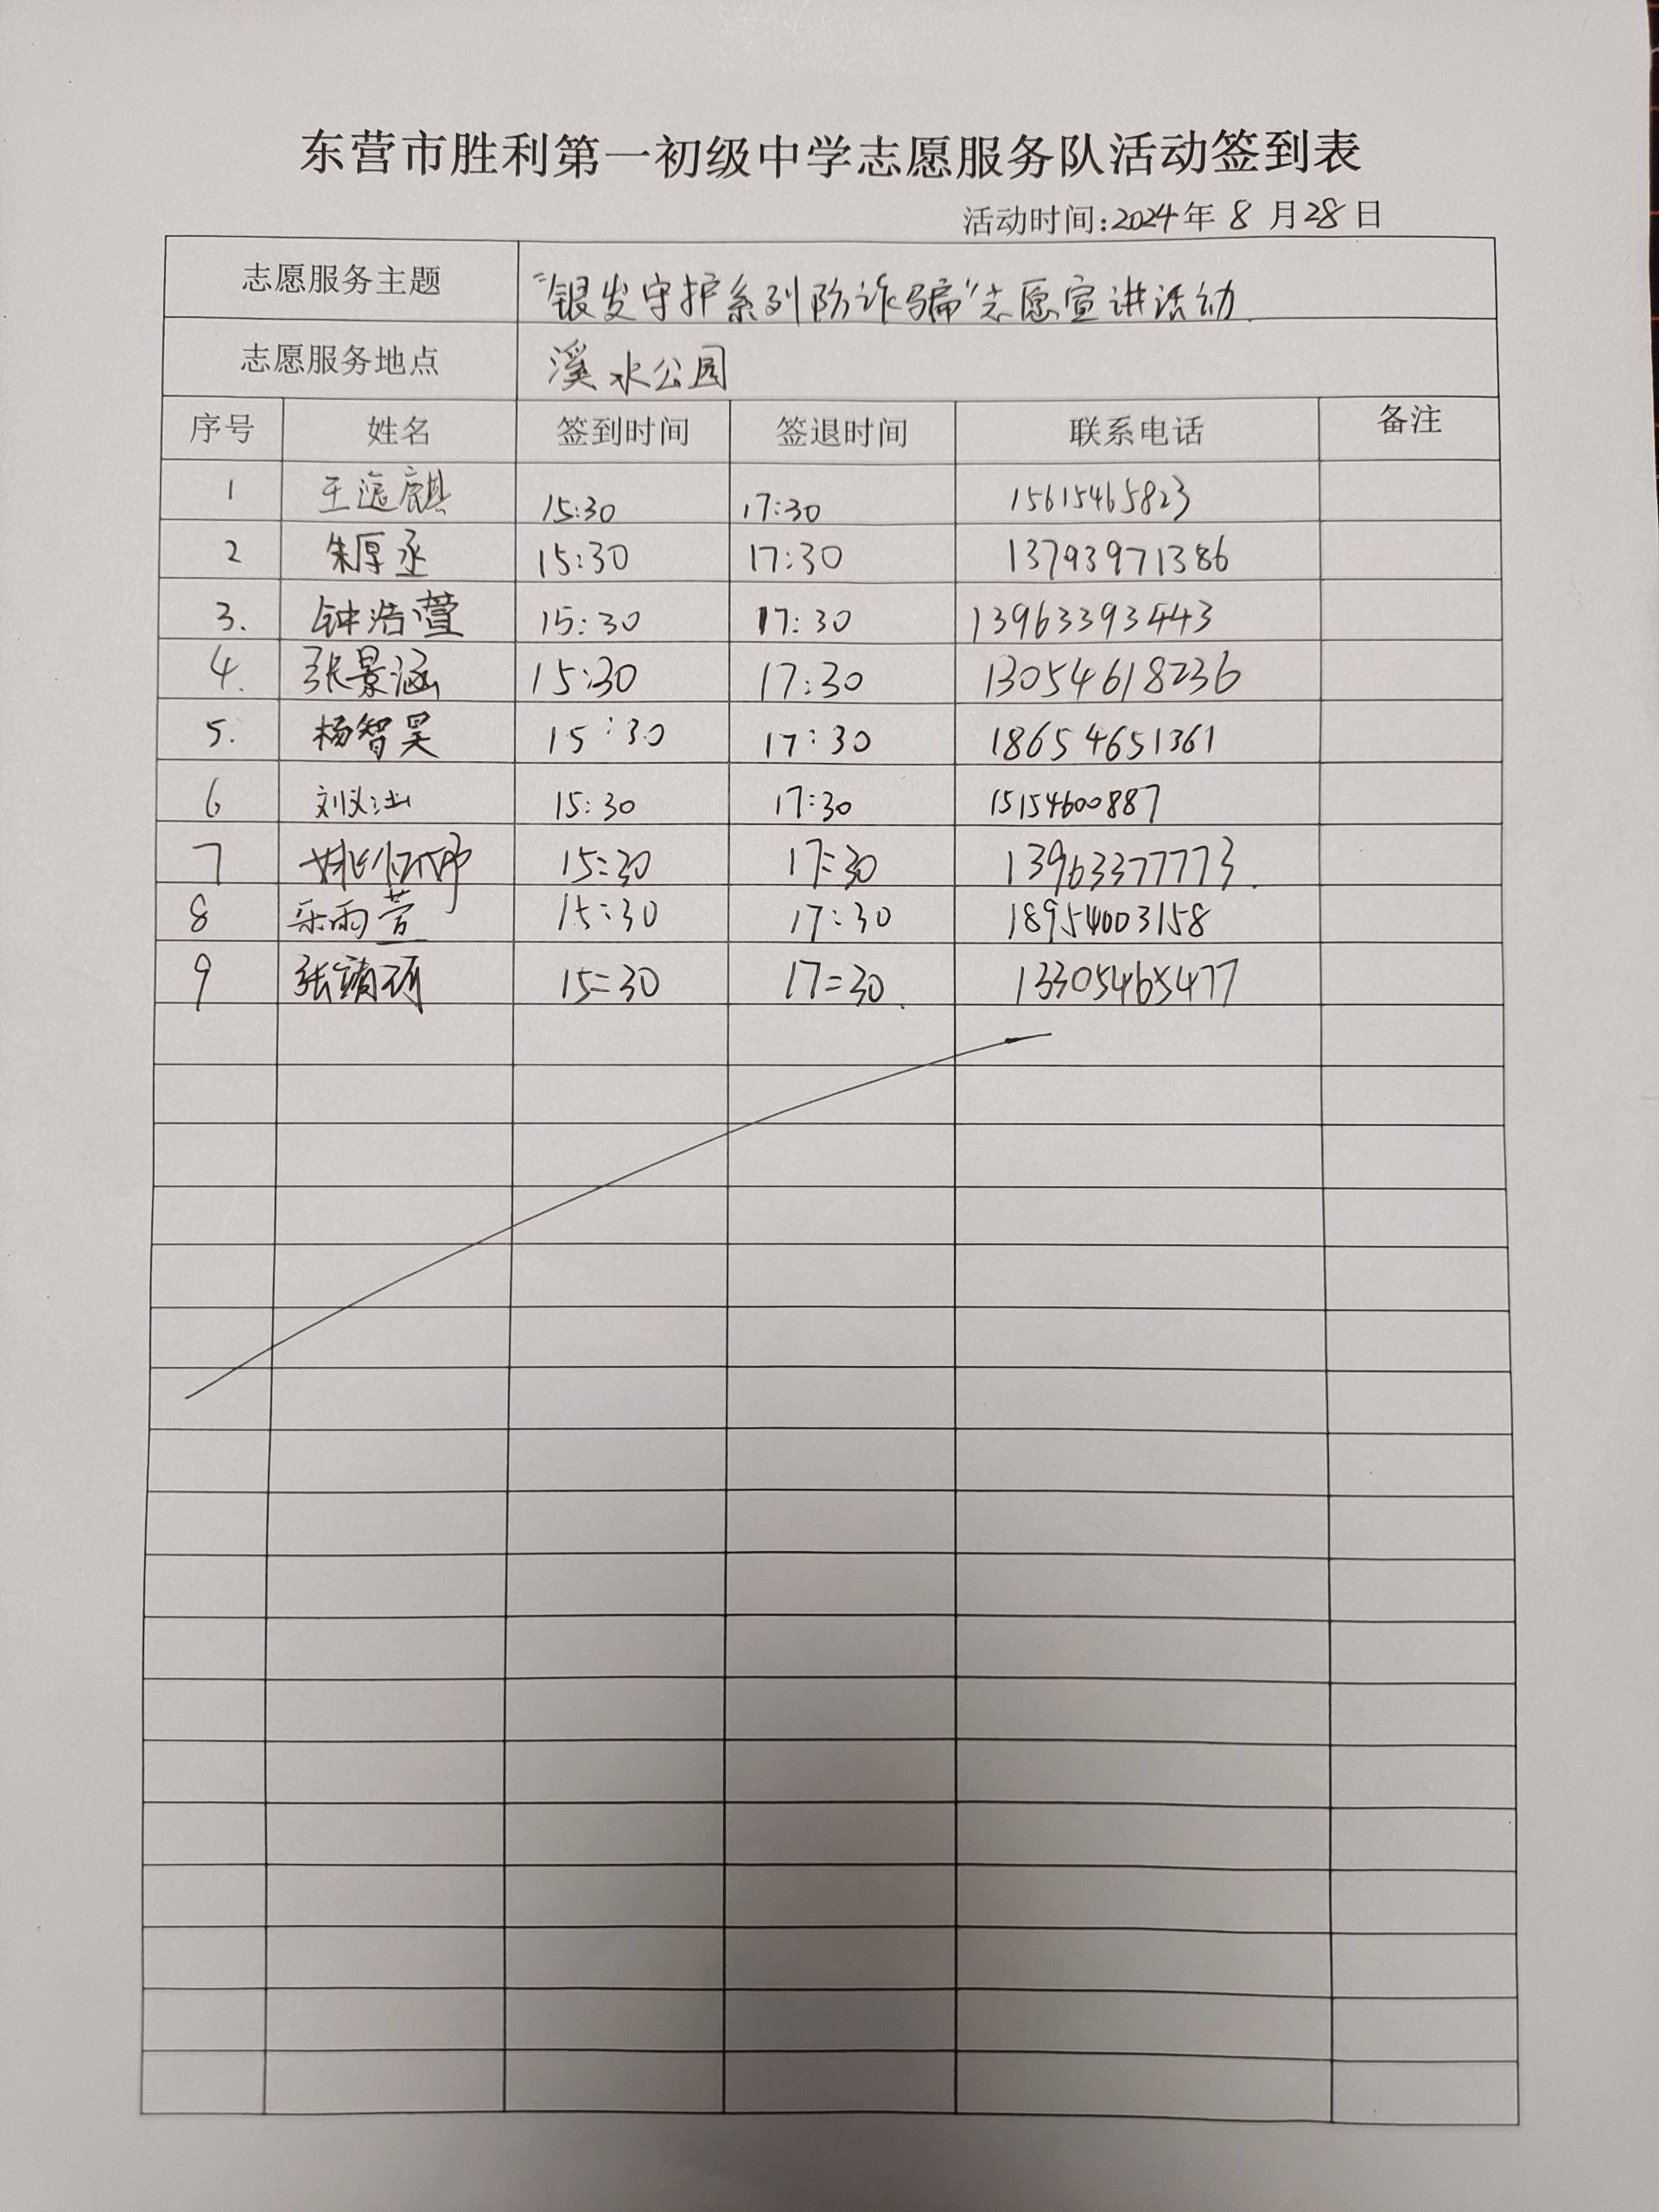 东营市胜利第一初级中学志愿服务队活动签到表
活动时间:2024年 8 月28日
志愿服务主题 "银发守护系列防诈骗"志愿宣讲活动.
志愿服务地点 溪水公园
序号 姓名 签到时间 签退时间 联系电话 备注
1 王 麒 15:30 17:30 15615465823
2 朱厚丞 15:30 17:30 13793971386
3. 钟浩萱 15:30 17:30 13963393443
4. 张景涵 15:30 17:30 13054618236
5. 杨智昊 15:30 17:30 18654651361
6 刘 15:30 17:30 15154600887
7 姚 15:30 17:30 13963377773.
8 乐雨萱 15:30 17:30 18954003158
9 张靖 15=30 17=30. 13305465477